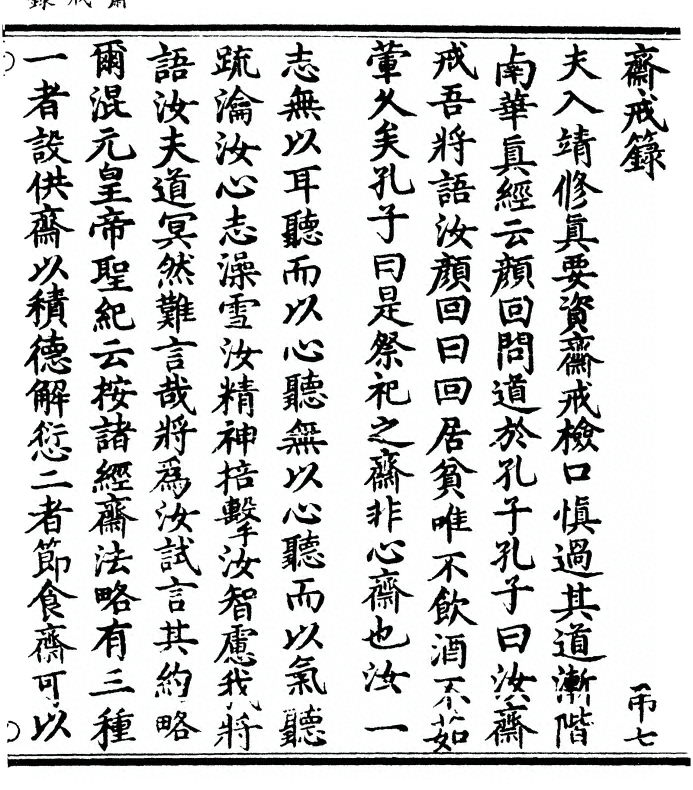 齋戒籙
弔七
夫入靖修眞要資齋戒檢口愼過其道漸階
南華眞經云顔回問道於孔子孔子曰汝齋
戒吾將語汝顔回曰回居貧唯不飲酒不茹
葷久矣孔子曰是祭祀之齋非心齋也汝一
志無以耳聽而以心聽無以心聽而以氣聽
疏瀹汝心志澡雪汝精神掊擊汝智慮我將
語汝夫道冥然難言哉將爲汝試言其約略
爾混元皇帝聖紀云按諸經齋法略有三種
一者設供齋以積德解愆二者節食齋可以